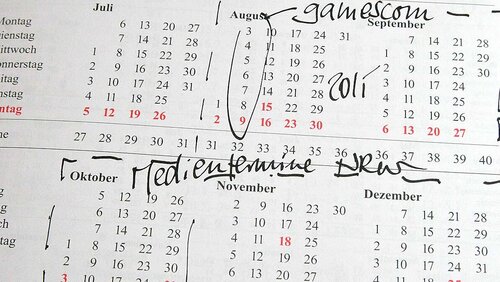 gamescom
Juli August September
Montag 6 13 20 27 3 10 17 24 31 7 14 21 28
ienstag 7 14 21 28 4 11 18 25 1 8 15 22 29
ittwoch 1 8 15 22 29 5 12 19 26 2 9 16 23 30
onnerstag 2 9 16 23 30 6 13 20 27 3 10 17 24
itag 3 10 17 24 31 7 14 21 28 4 11 18 25
nstag 4 11 18 25 1 8 15 22 29 5 12 19 26
ntag 5 12 19 26 2 9 16 23 30 6 13 20 27
27 28 29 30 31 31 32 33 34 35 36 36 37 38 39 40
Medientermine NRW
Oktober November Dezember
5 12 19 26 2 9 16 23 30 7 14 21 28
6 13 20 27 3 10 17 24 1 8 15 22 29
7 14 21 28 4 11 18 25 2 9 16 23 30
1 8 15 22 29 5 12 19 26 3 10 17 24
2 9 16 23 30 6 13 20 27 4 11 18
3 10 17 24